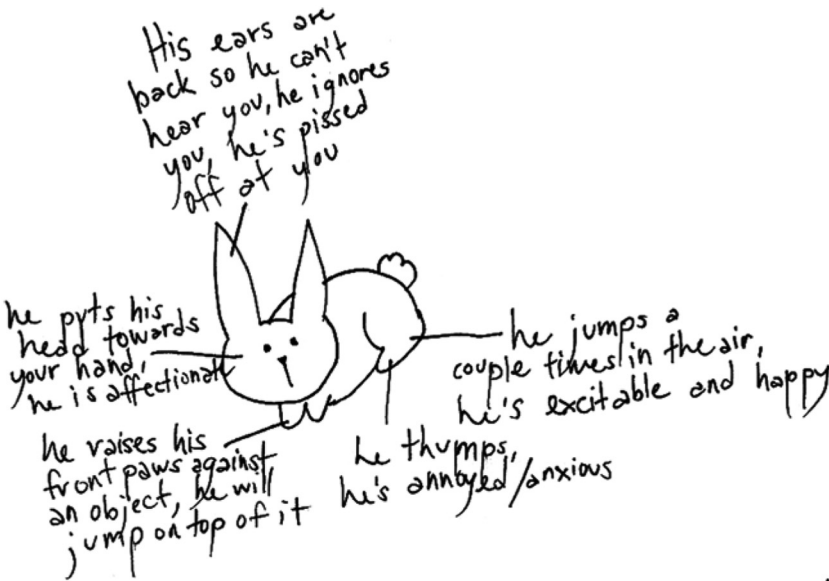 His ears are
back so he can't
hear you, he ignores
you, he's pissed
off at you
he pyts his
head towards
your hand,
he is affectionate
he jumps a
couple times in the air,
he's excitable and happy
he raises his
front paws against
an object, he will
jump on top of it
he thumps,
he's annoyed/anxious